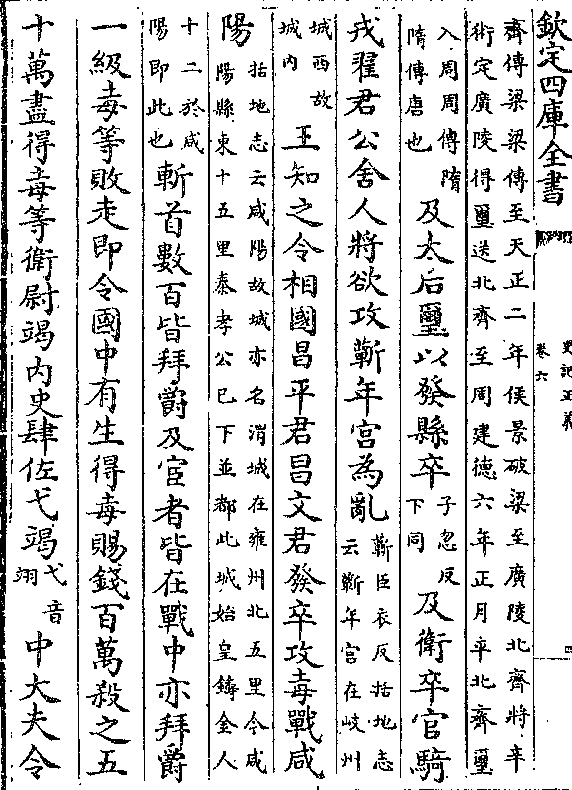 欽定四庫全書
史記正義
卷六
四
齊傳梁梁傳至天正二年侯景破梁至廣陵北齊將辛
術定廣陵得璽送北齊至周建德六年正月平北齊璽
入周周傳隋隋傳唐也及太后璽以發縣卒子忽反下同及衛卒官騎
戎翟君公舍人將欲攻蘄年宮為亂蘄臣衣反括地志云蘄年宮在岐州
城西故城内王知之令相國昌平君昌文君發卒攻毐戰咸
陽括地志云咸陽故城亦名渭城在雍州北五里今咸陽縣東十五里秦孝公已下並都此城始皇鑄金人
十二於咸陽即此也斬首數百皆拜爵及宦者皆在戰中亦拜爵
一級毐等敗走即令國中有生得毐賜錢百萬殺之五
十萬盡得毐等衛尉竭内史肆佐弋竭弋音翊中大夫令